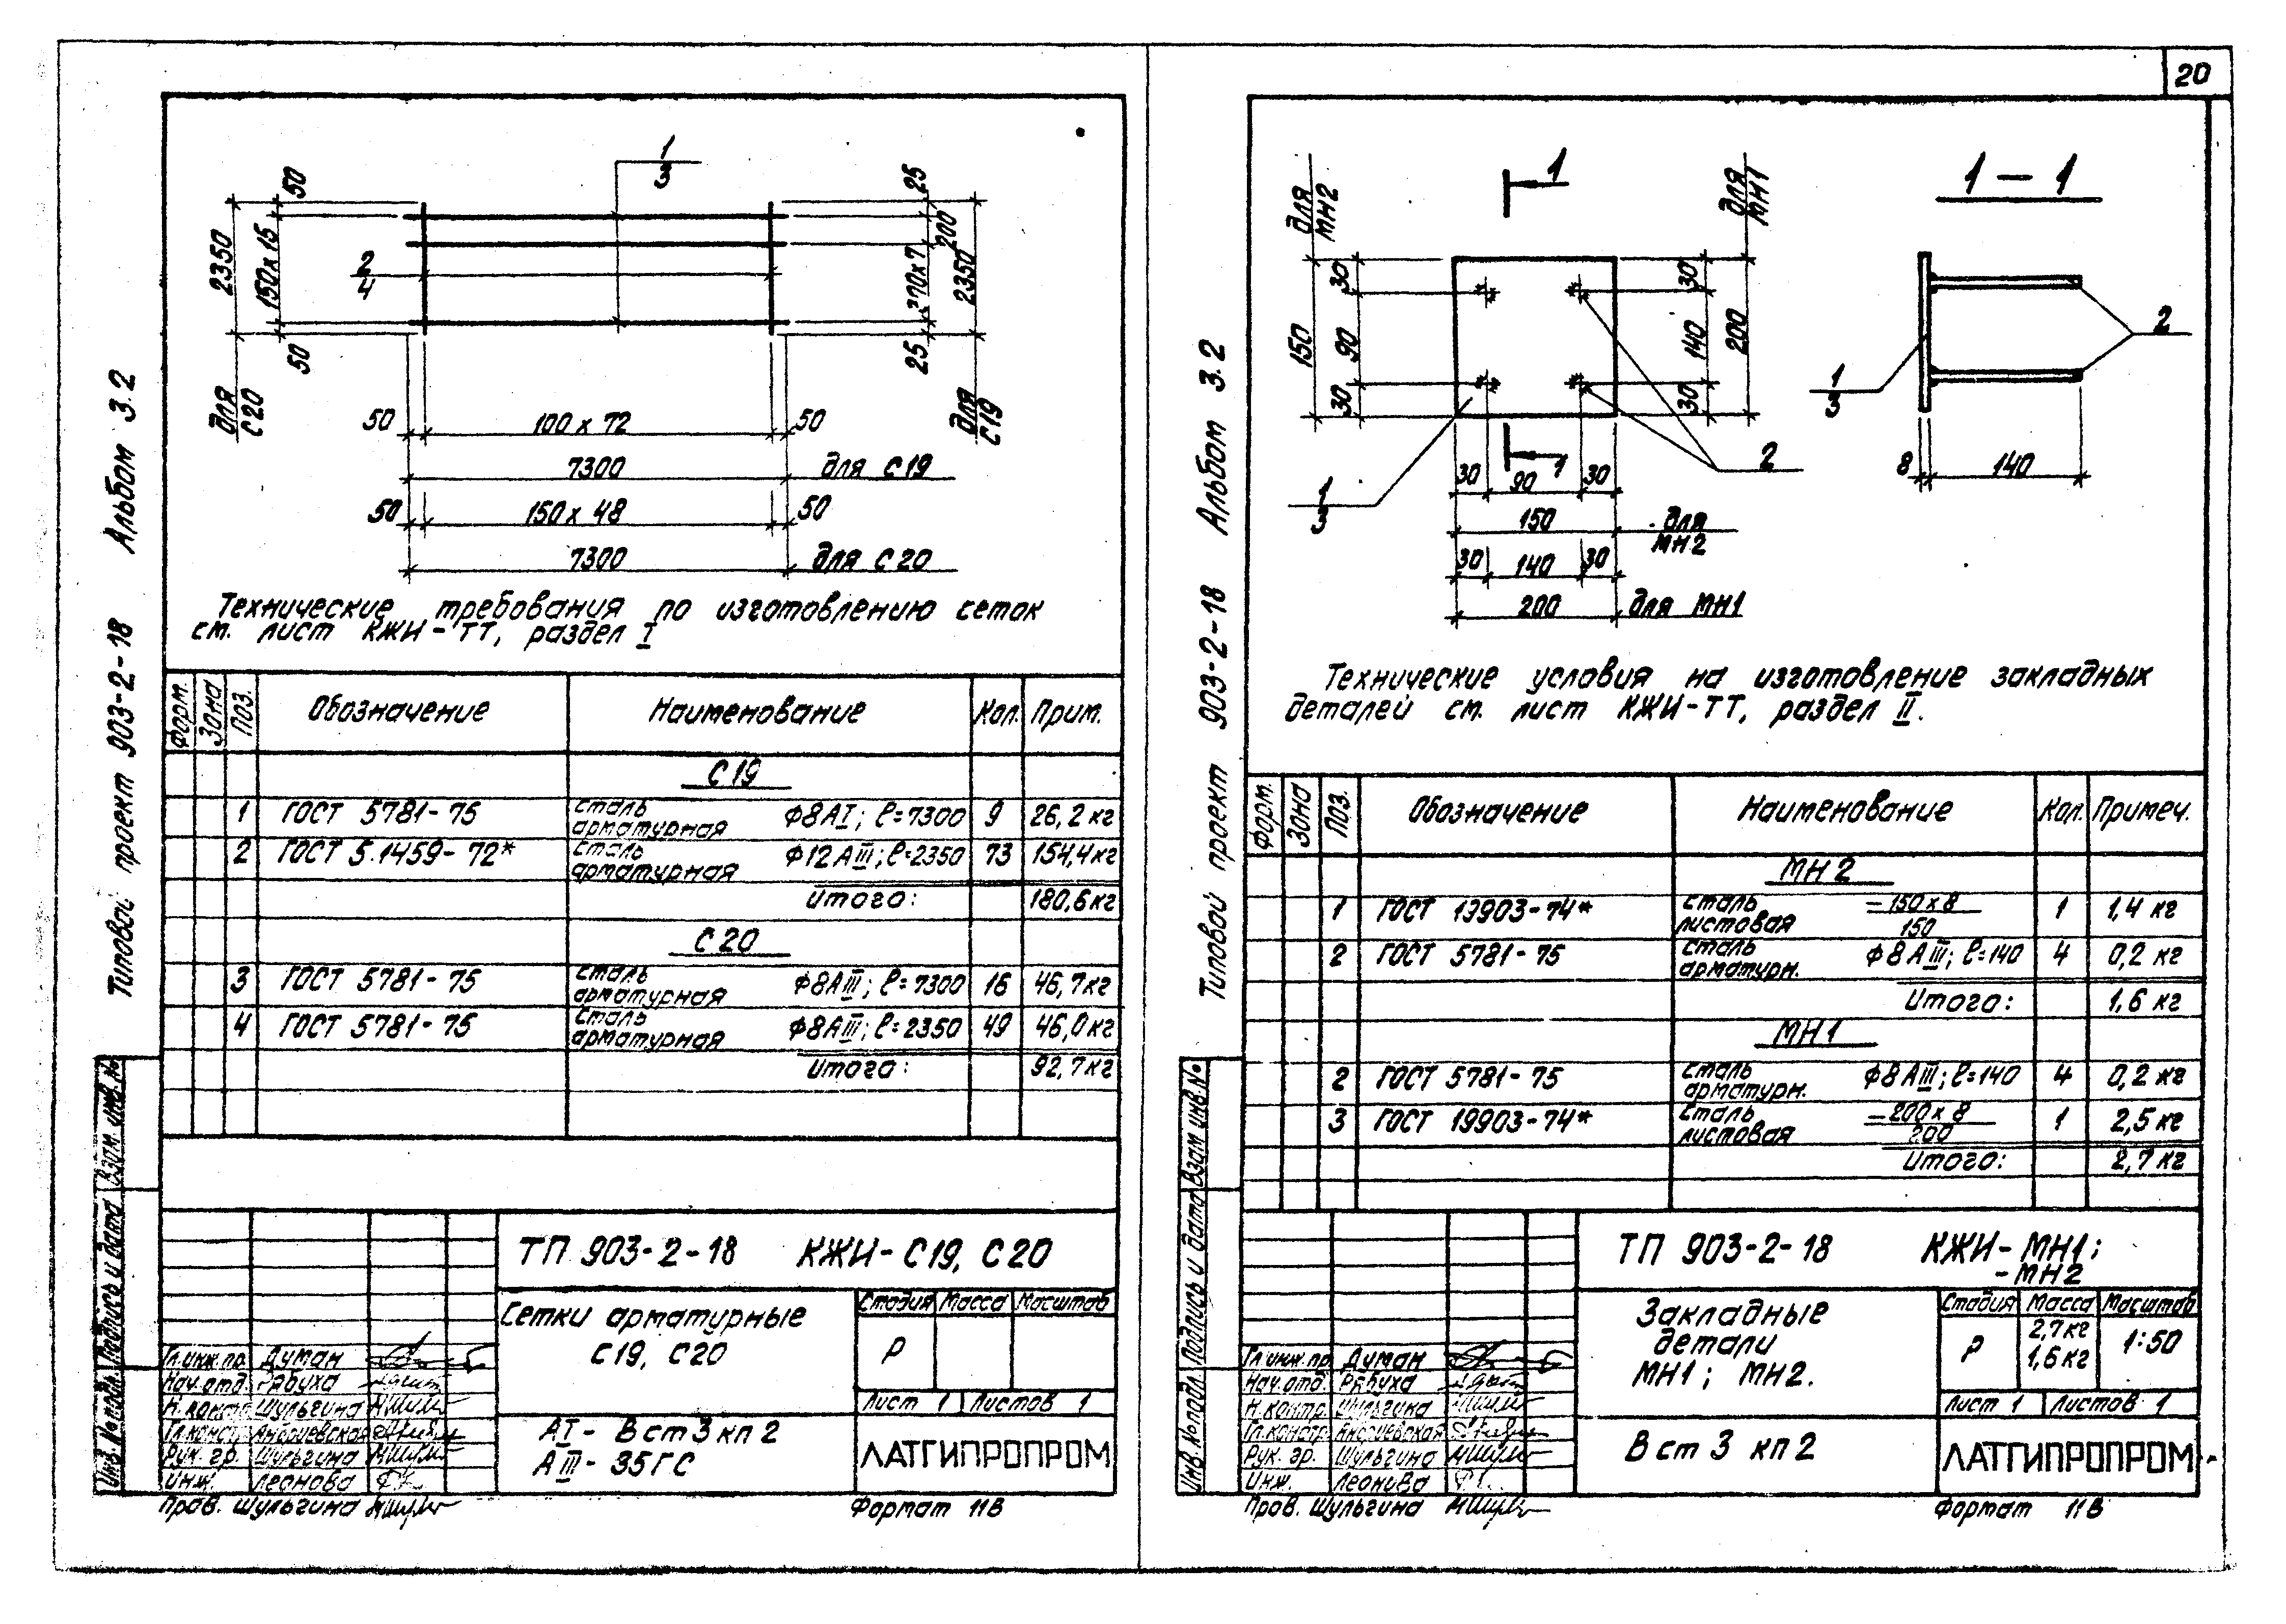 20
Типовой проект 903-2-18 Альбом 3.2
1
3
50
2350
150х15
50
2
4
25
200
370х7
2350
25
для С20
для С19
50 100 х 72 50
7300 для С19
50 150 х 48 50
7300 для С20
Технические требования по изготовлению сеток
см. лист КЖИ-ТТ, раздел I
Форм. Зона Поз. Обозначение Наименование Кол. Прим.
С19
1 ГОСТ 5781-75 сталь арматурная Ф8АI; ℓ=7300 9 26,2 кг
2 ГОСТ 5.1459-72* сталь арматурная Ф12АIII; ℓ=2350 73 154,4кг
Итого: 180,6кг
С20
3 ГОСТ 5781-75 сталь арматурная Ф8АIII; ℓ=7300 16 46,7кг
4 ГОСТ 5781-75 сталь арматурная Ф8АIII; ℓ=2350 49 46,0кг
Итого: 92,7кг
Инв.№ подл. Подпись и дата Взам инв.№
ТП 903-2-18 КЖИ-С19, С20
Сетки арматурные
С19, С20
Стадия Масса Масштаб
Р
Лист 1 Листов 1
АI - Вст3кп2
АIII - 35ГС
ЛАТГИПРОПРОМ
Гл.инж.пр. Думан
Нач.отд. Рябуха
Н.контр. Шульгина
Гл.констр. Андриевская
Рук. гр. Шульгина
Инж. Леонова
Пров. Шульгина
Формат 11В
Типовой проект 903-2-18 Альбом 3.2
для МН2
для МН1
1
1
1 - 1
30
90
30
150
30
140
30
200
2
1
3
30 90 30
150 для МН2
30 140 30
200 для МН1
1
3
2
8 140
Технические условия на изготовление закладных
деталей см. лист КЖИ-ТТ, раздел II.
Форм. Зона Поз. Обозначение Наименование Кол. Примеч.
МН2
1 ГОСТ 19903-74* сталь листовая -150х8 150 1 1,4 кг
2 ГОСТ 5781-75 сталь арматурн. Ф8АIII; ℓ=140 4 0,2 кг
Итого: 1,6 кг
МН1
2 ГОСТ 5781-75 сталь арматурн. Ф8АIII; ℓ=140 4 0,2 кг
3 ГОСТ 19903-74* сталь листовая -200х8 200 1 2,5 кг
Итого: 2,7 кг
Инв.№подл. Подпись и дата Взам инв.№
ТП 903-2-18 КЖИ-МН1;
-МН2
Закладные
детали
МН1; МН2.
Стадия Масса Масштаб
Р 2,7кг 1,6кг 1:50
Лист 1 Листов 1
Вст3 кп2
ЛАТГИПРОПРОМ
Гл.инж.пр. Думан
Нач.отд. Рябуха
Н.контр. Шульгина
Гл.констр. Андриевская
Рук. гр. Шульгина
Инж. Леонова
Пров. Шульгина
Формат 11В